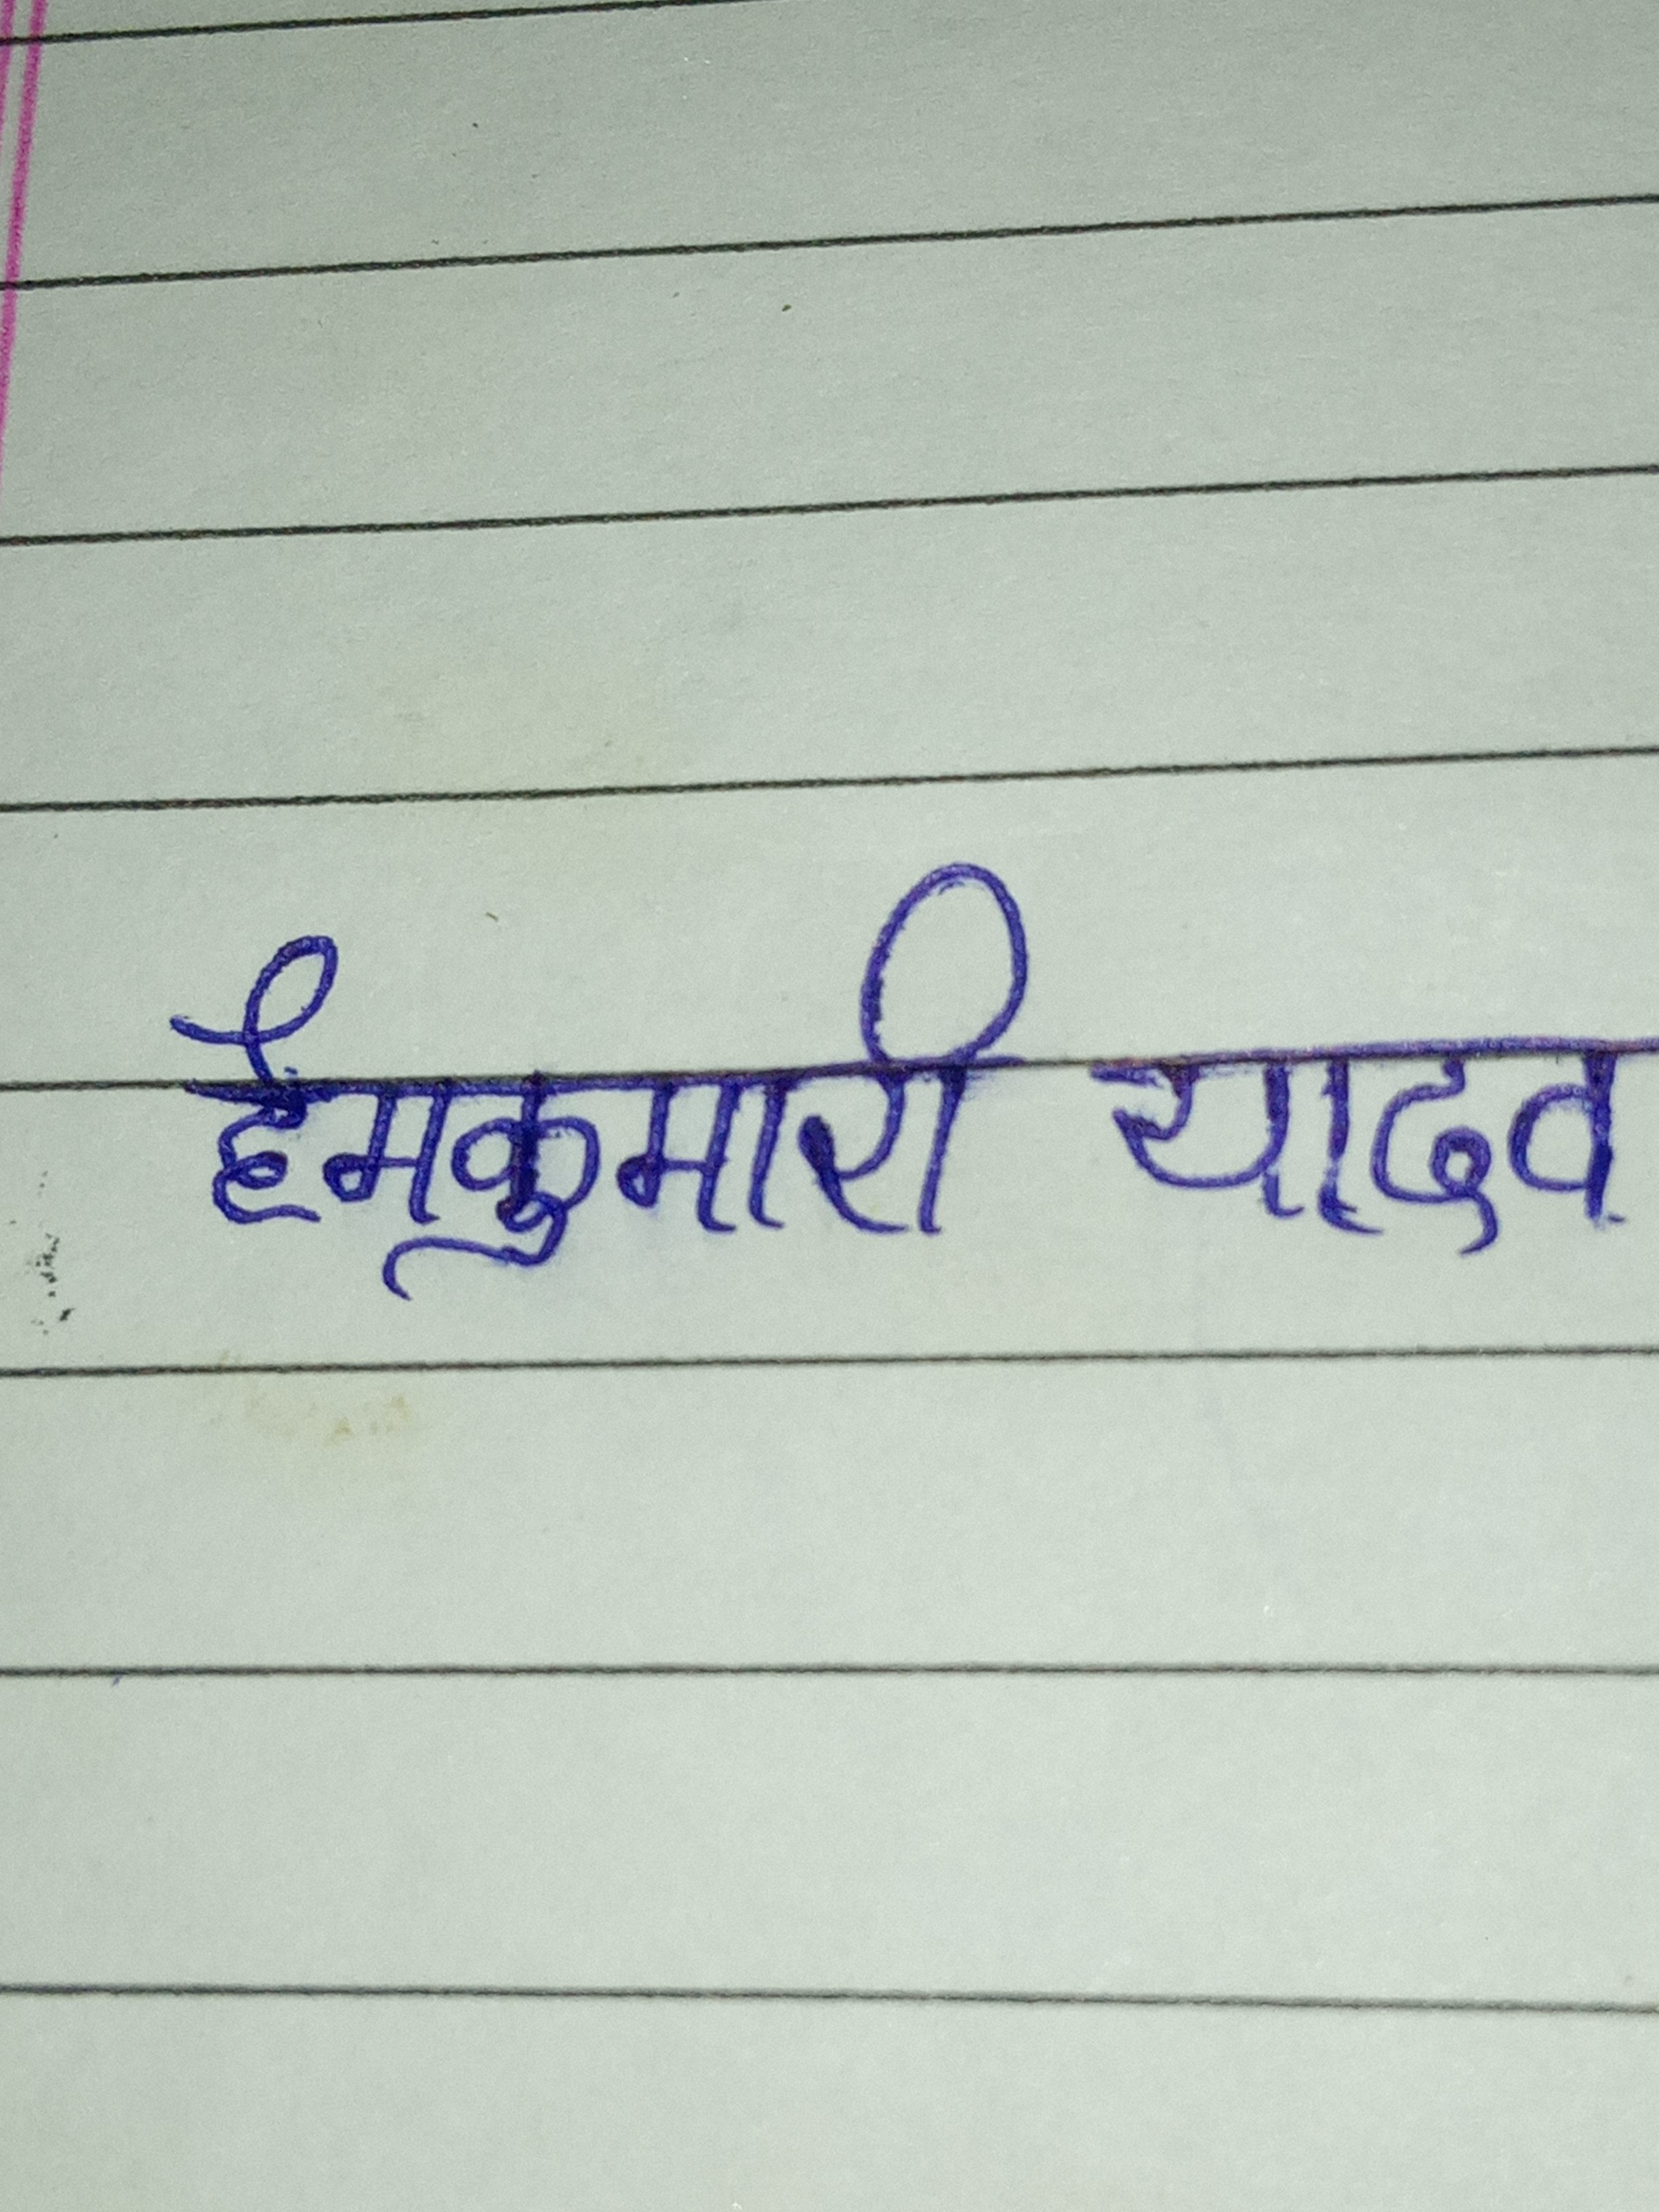 हेमकुमारी यादव